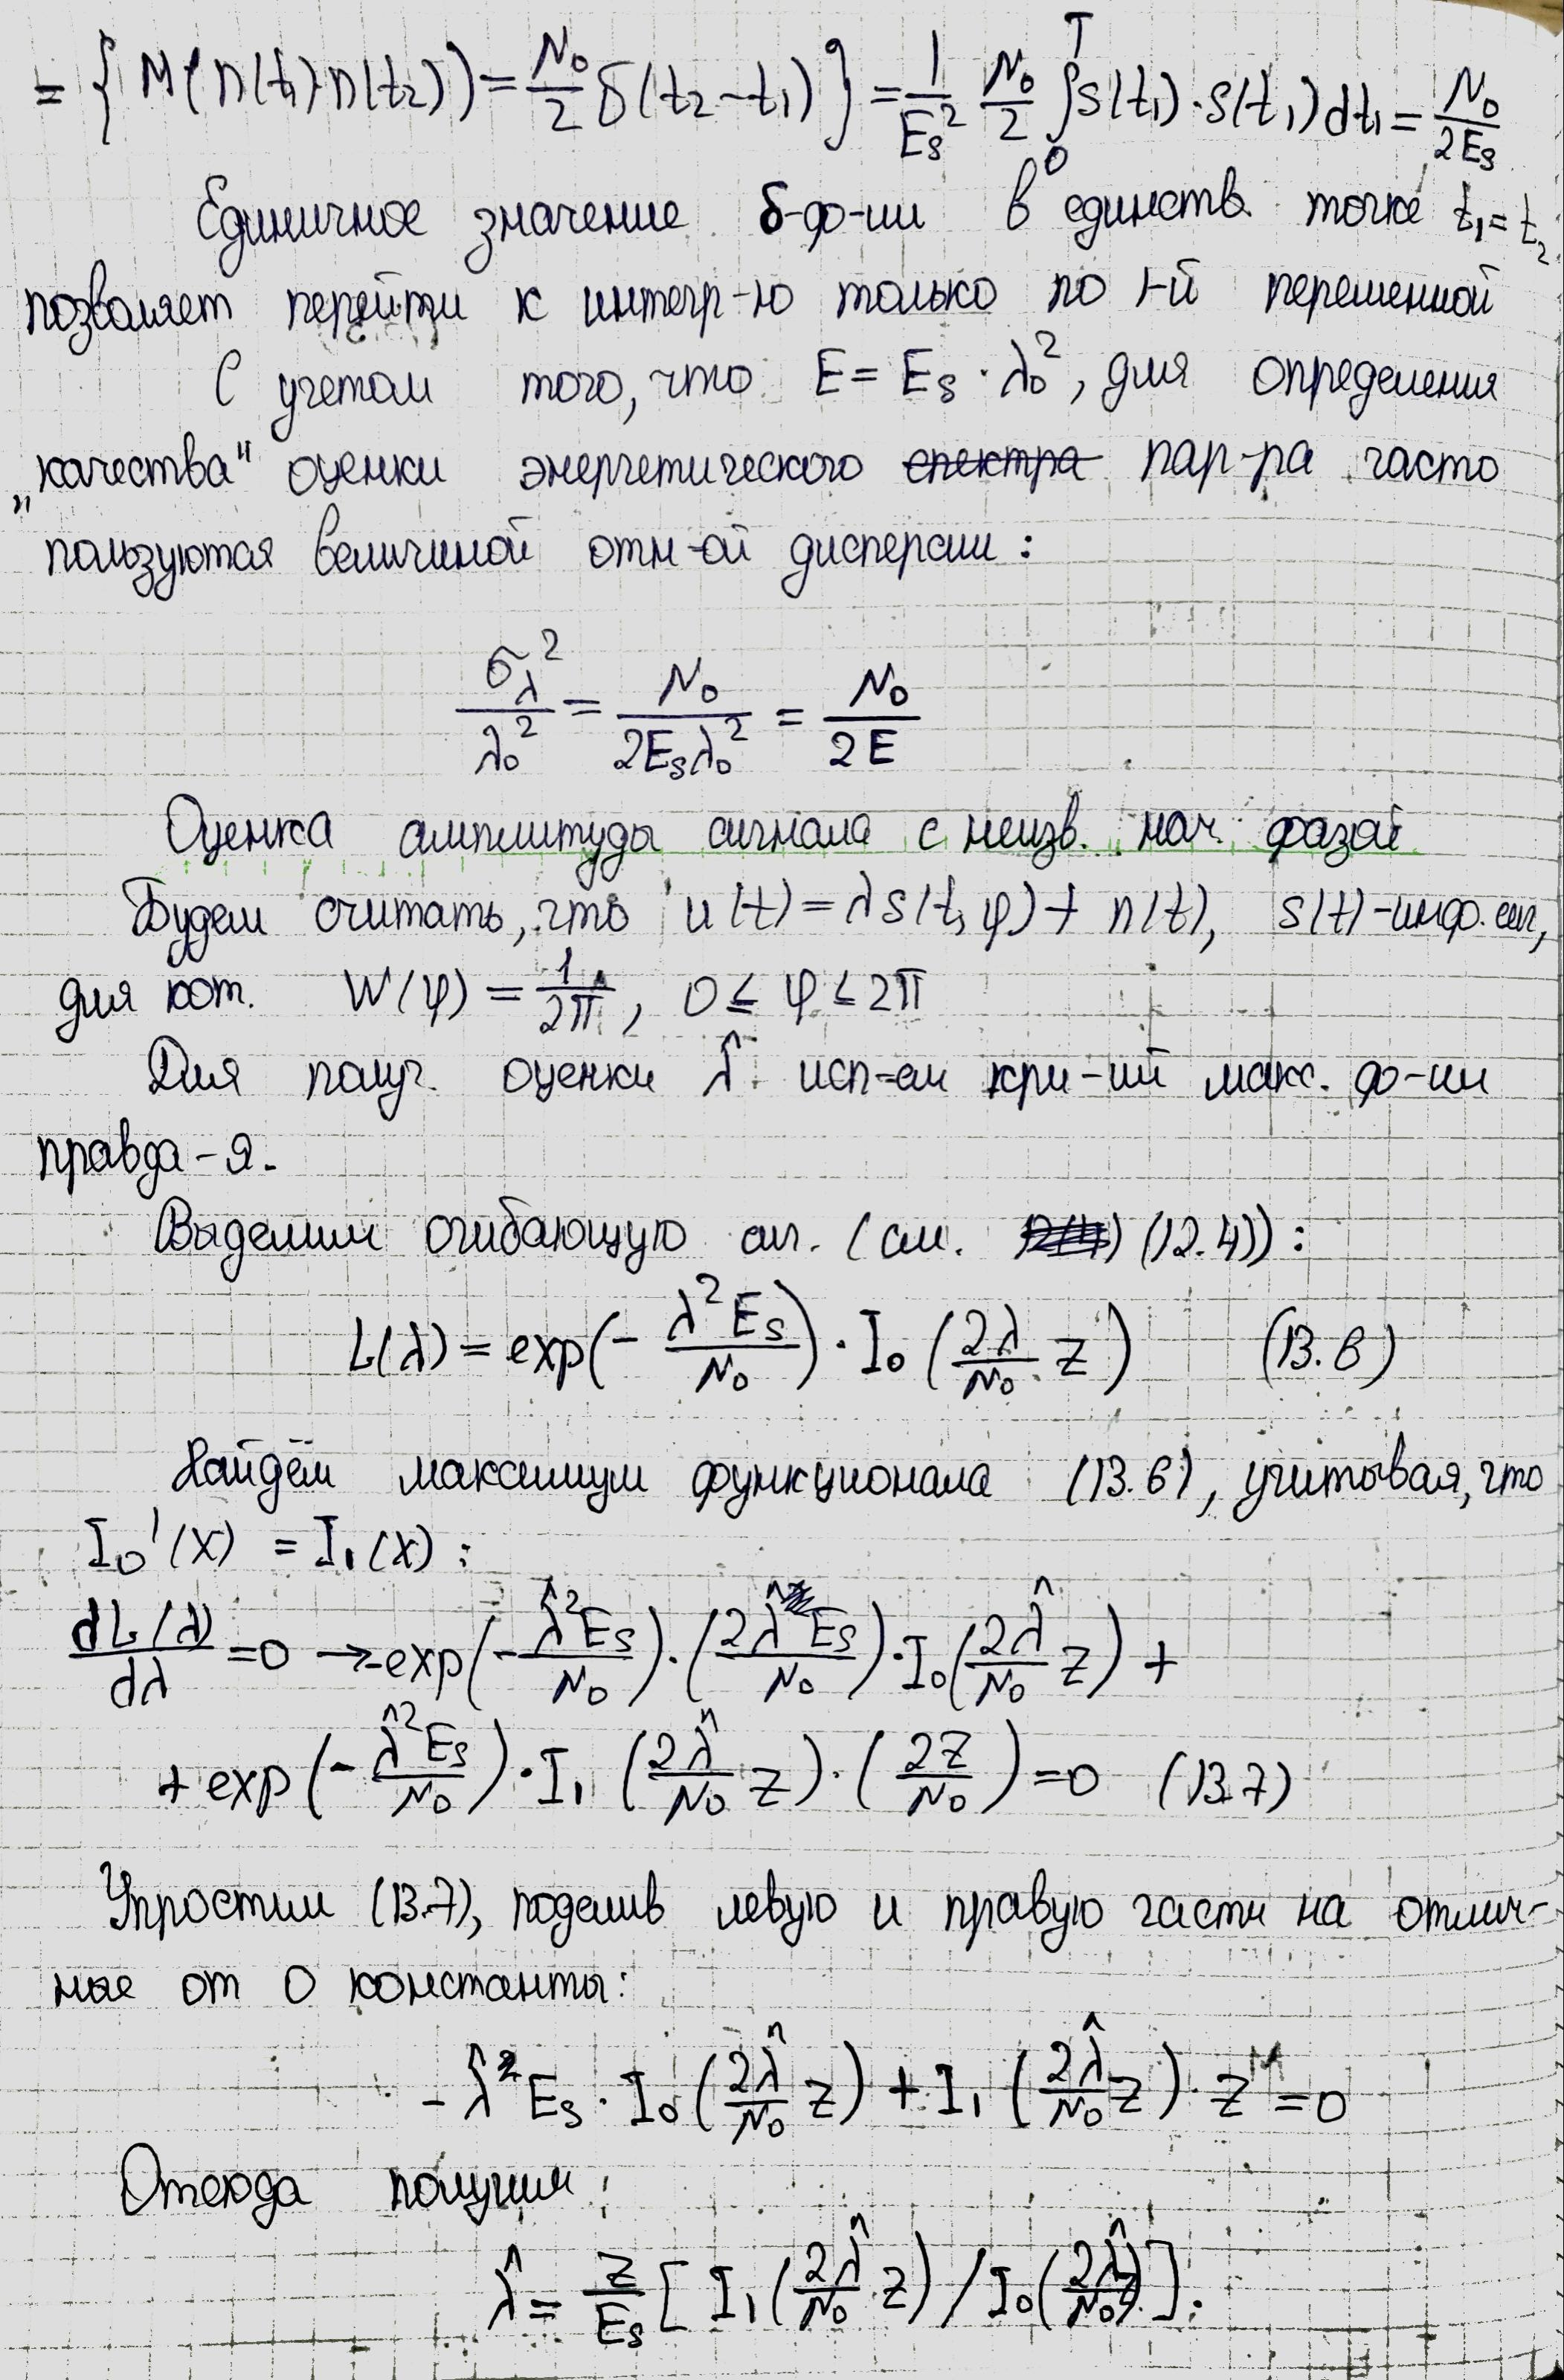 = { M(n(t₁)·n(t₂)) = N₀/2 δ(t₂-t₁) } = 1/Eₛ² N₀/2 ∫₀ᵀ s(t₁)·s(t₁)dt₁ = N₀/2Eₛ
Единичное значение δ-ф-ии в единств. точке t₁=t₂
позволяет перейти к интегр-ю только по 1-й переменной
С учетом того, что E = Eₛ·λ₀², для определения
„качества" оценки энергетического спектра пар-ра часто
пользуются величиной отн-ой дисперсии:
σ_λ²/λ₀² = N₀/2Eₛλ₀² = N₀/2E
Оценка амплитуды сигнала с неизв. нач. фазой
Будем считать, что u(t) = λs(t,φ) + n(t), s(t)-инф. сиг,
для кот. W(φ) = 1/2π, 0 ≤ φ ≤ 2π
Для получ. оценки λ̂ исп-ем кри-ий макс. ф-ии
правдо-я.
Выделим огибающую сиг. (см. (12.4)):
L(λ) = exp(- λ²Eₛ/N₀)·I₀(2λ/N₀ z) (13.6)
Найдём максимум функционала (13.6), учитывая, что
I₀'(x) = I₁(x):
dL(λ)/dλ = 0 → -exp(-λ̂²Eₛ/N₀)·(2λ̂Eₛ/N₀)·I₀(2λ̂/N₀ z) +
+ exp(-λ̂²Eₛ/N₀)·I₁(2λ̂/N₀ z)·(2z/N₀) = 0 (13.7)
Упростим (13.7), поделив левую и правую части на отлич-
ные от 0 константы:
-λ̂Eₛ·I₀(2λ̂/N₀ z) + I₁(2λ̂/N₀ z)·z = 0
Отсюда получим:
λ̂ = z/Eₛ [I₁(2λ̂/N₀ z) / I₀(2λ̂/N₀ z)].